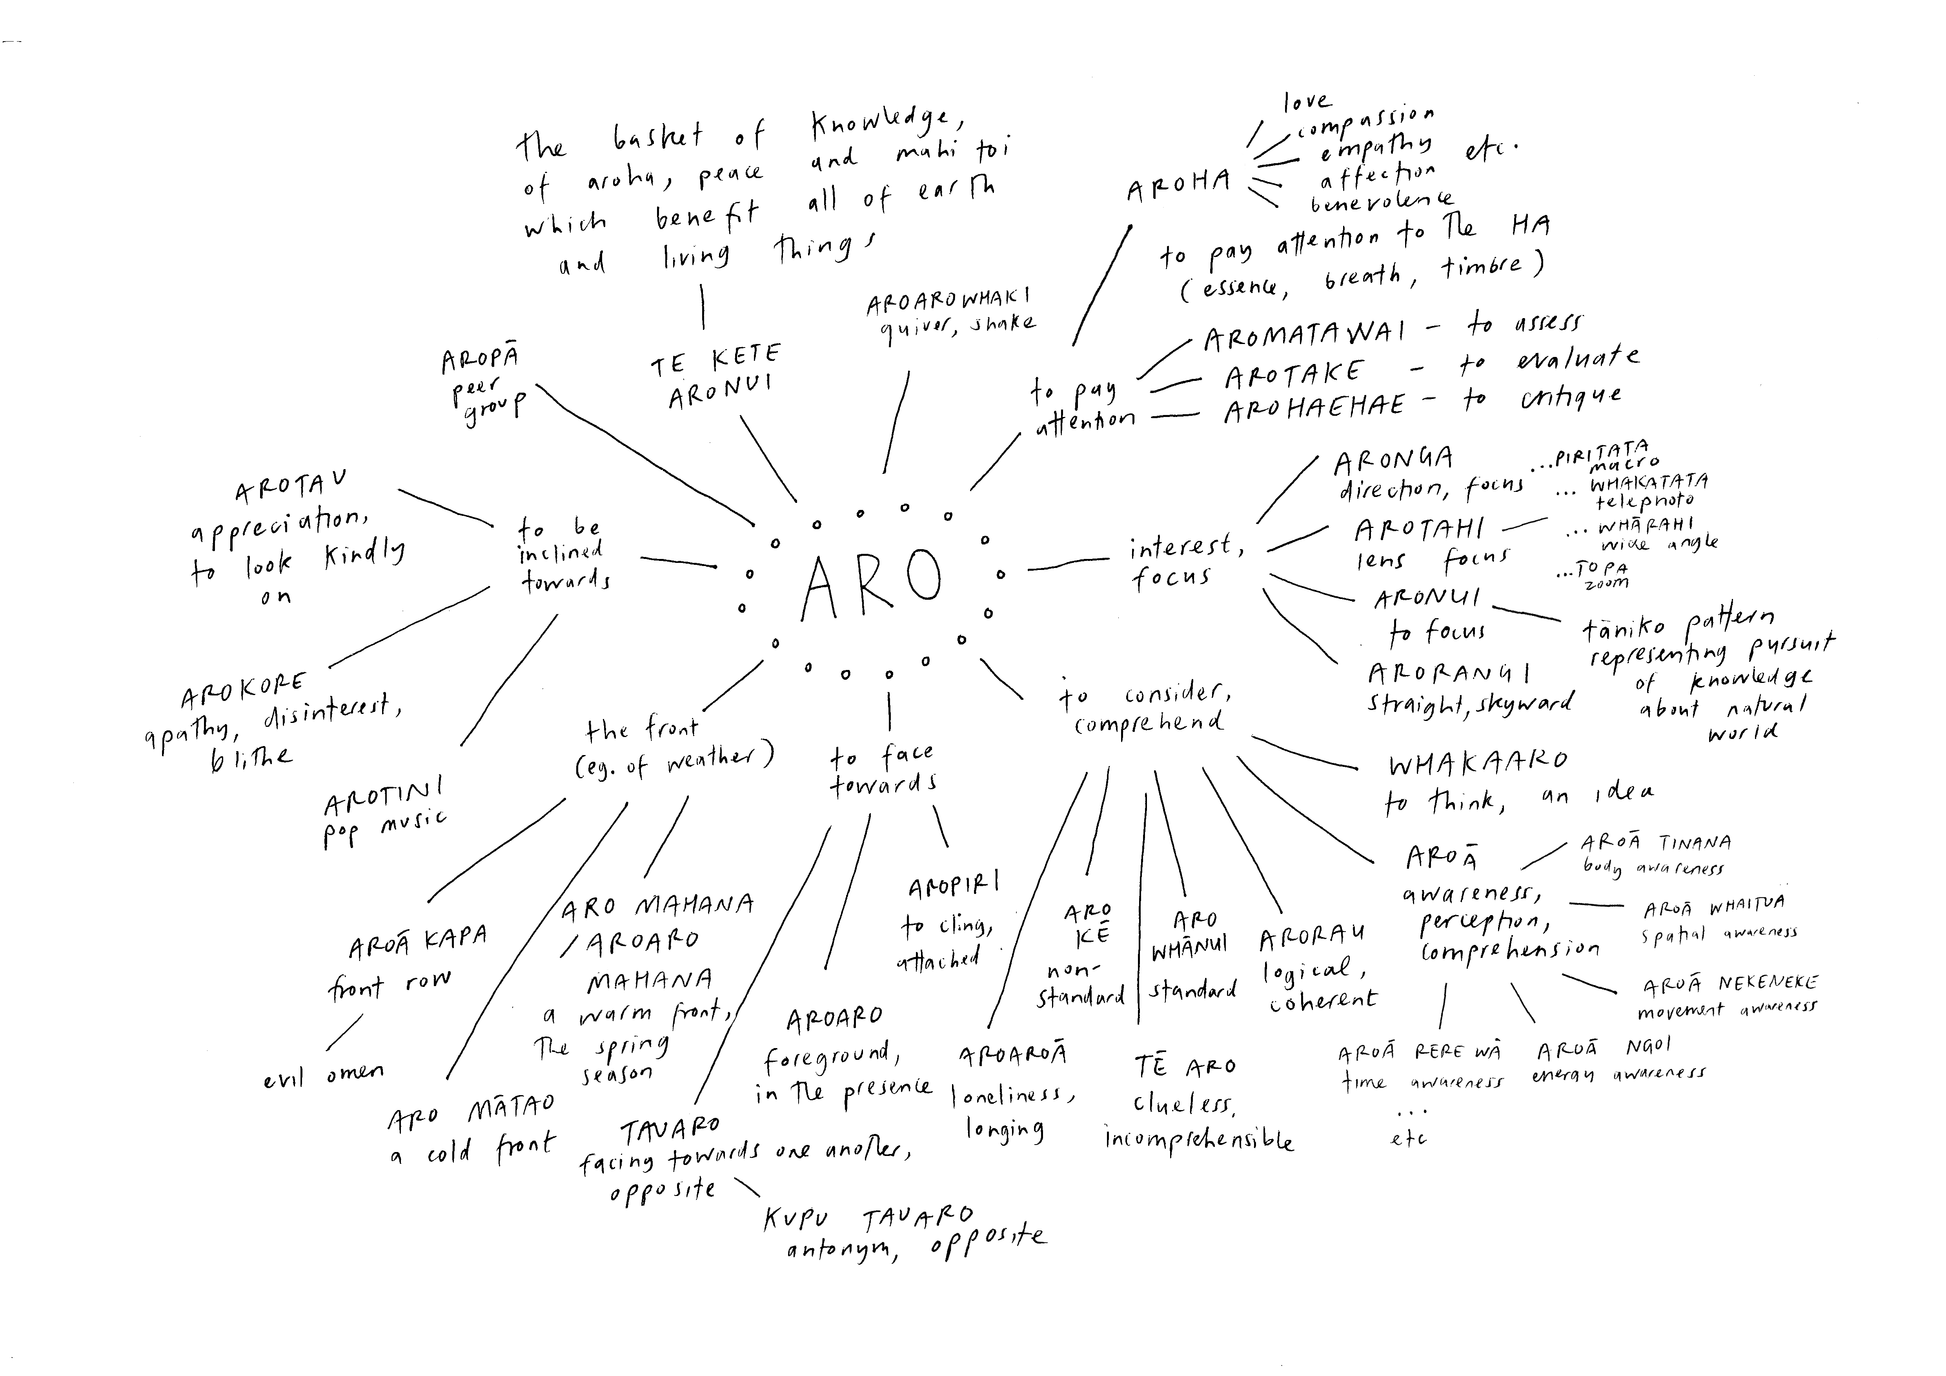 the basket of knowledge,
of aroha, peace and mahi toi
which benefit all of earth
and living things
TE KETE
ARONUI
AROAROWHAKI
quiver, shake
AROPĀ
peer
group
love
compassion
empathy etc.
affection
benevolence
AROHA
to pay attention to the HA
(essence, breath, timbre)
to pay
attention
AROMATAWAI – to assess
AROTAKE – to evaluate
AROHAEHAE – to critique
ARO
interest,
focus
ARONGA
direction, focus
AROTAHI
lens focus
...PIRITATA
macro
... WHAKATATA
telephoto
... WHĀRAHI
wide angle
...TOPA
zoom
ARONUI
to focus
tāniko pattern
representing pursuit
of knowledge
about natural
world
ARORANGI
straight, skyward
to consider,
comprehend
WHAKAARO
to think, an idea
AROĀ
awareness,
perception,
comprehension
AROĀ TINANA
body awareness
AROĀ WHAITUA
spatial awareness
AROĀ NEKENEKE
movement awareness
AROĀ NGOI
energy awareness
AROĀ RERE WĀ
time awareness
...
etc
ARORAU
logical,
coherent
ARO
WHĀNUI
standard
TĒ ARO
clueless,
incomprehensible
ARO
KĒ
non-
standard
AROAROĀ
loneliness,
longing
to face
towards
AROPIRI
to cling,
attached
AROARO
foreground,
in the presence
TAUARO
facing towards one another,
opposite
KUPU TAUARO
antonym, opposite
the front
(eg. of weather)
ARO MAHANA
/AROARO
MAHANA
a warm front,
the spring
season
ARO MĀTAO
a cold front
AROĀ KAPA
front row
evil omen
to be
inclined
towards
AROTAU
appreciation,
to look kindly
on
AROKORE
apathy, disinterest,
blithe
AROTINI
pop music